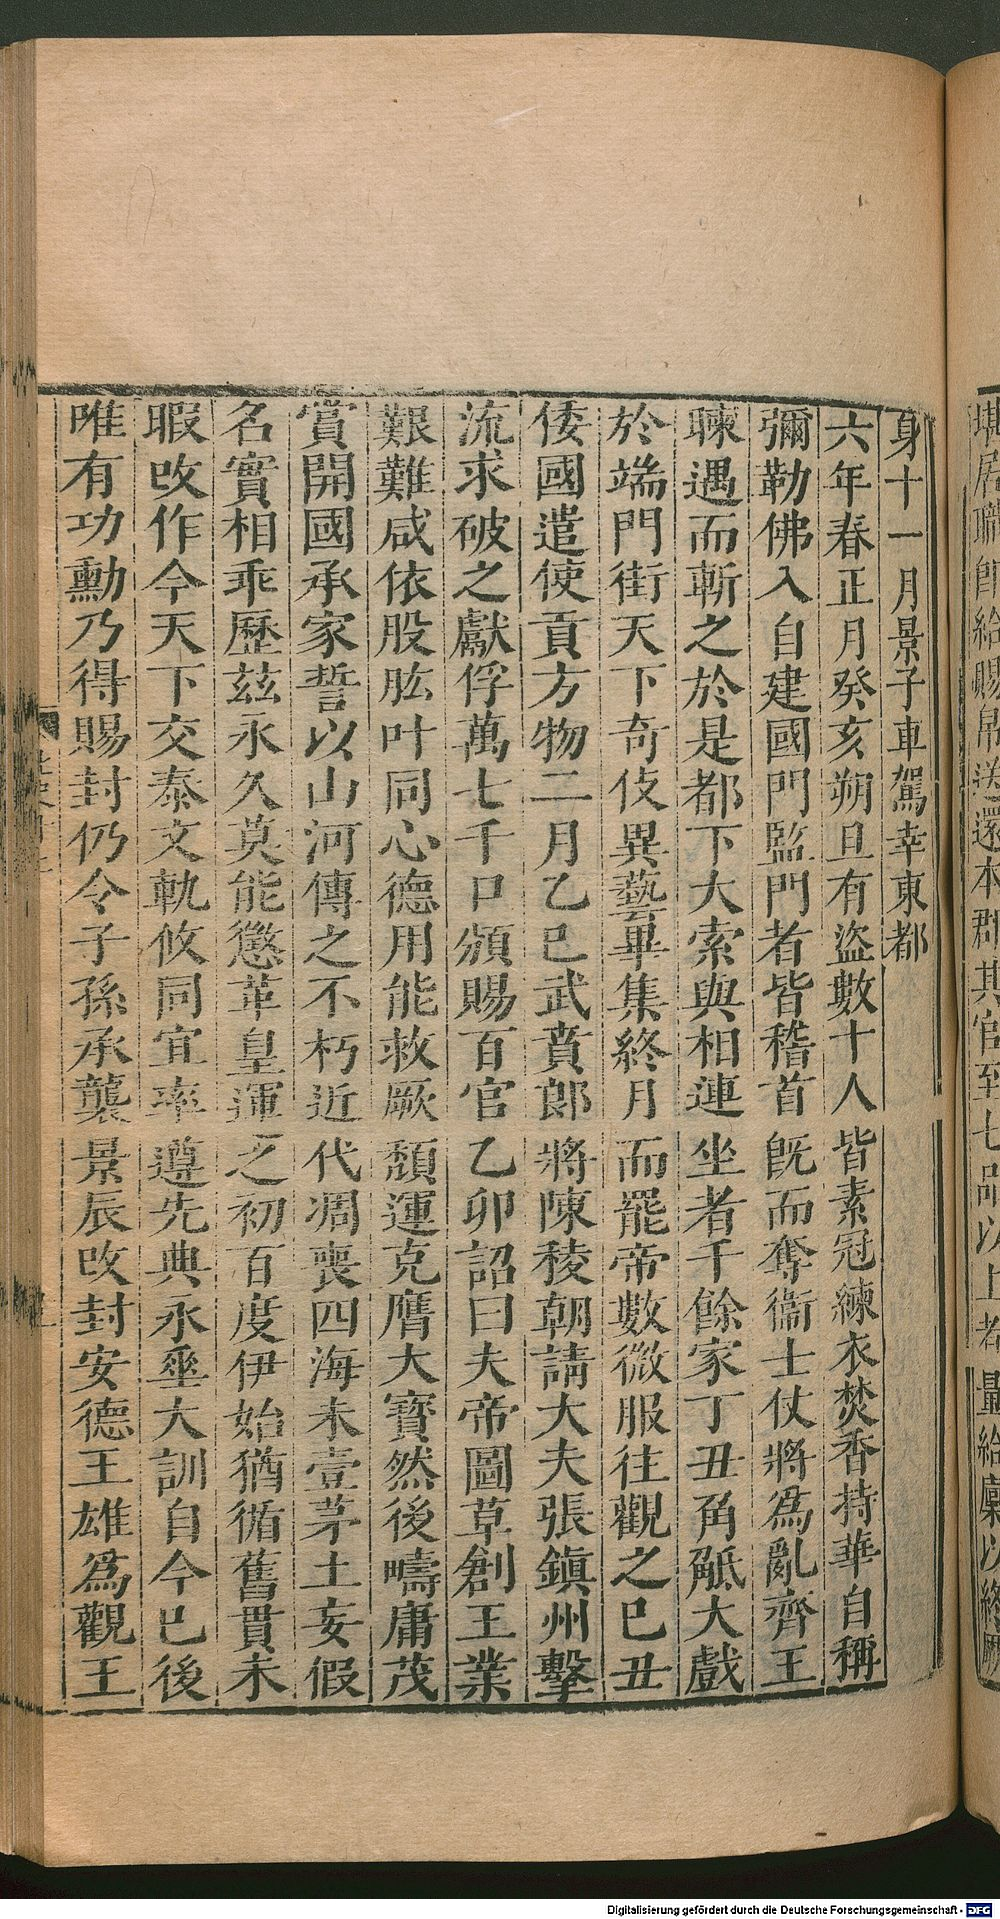 堪居職即給賜帛送還本郡其官至七品以上者量給廩以終厥
身十一月景子車駕幸東都
六年春正月癸亥朔旦有盜數十人皆素冠練衣焚香持華自稱
彌勒佛入自建國門監門者皆稽首既而奪衞士仗將爲亂齊王
暕遇而斬之於是都下大索與相連坐者千餘家丁丑角觝大戲
於端門街天下奇伎異藝畢集終月而罷帝數微服往觀之巳丑
倭國遣使貢方物二月乙巳武賁郎將陳稜朝請大夫張鎭州擊
流求破之獻俘萬七千口頒賜百官乙卯詔曰夫帝圖草創王業
艱難咸依股肱叶同心德用能救厥頽運克膺大寶然後疇庸茂
賞開國承家誓以山河傳之不朽近代凋喪四海未壹茅土妄假
名實相乖歷兹永久莫能懲革皇運之初百度伊始猶循舊貫未
暇改作今天下交泰文軌攸同宜率遵先典永垂大訓自今巳後
唯有功勳乃得賜封仍令子孫承襲景辰改封安德王雄爲觀王
Digitalisierung gefördert durch die Deutsche Forschungsgemeinschaft - DFG